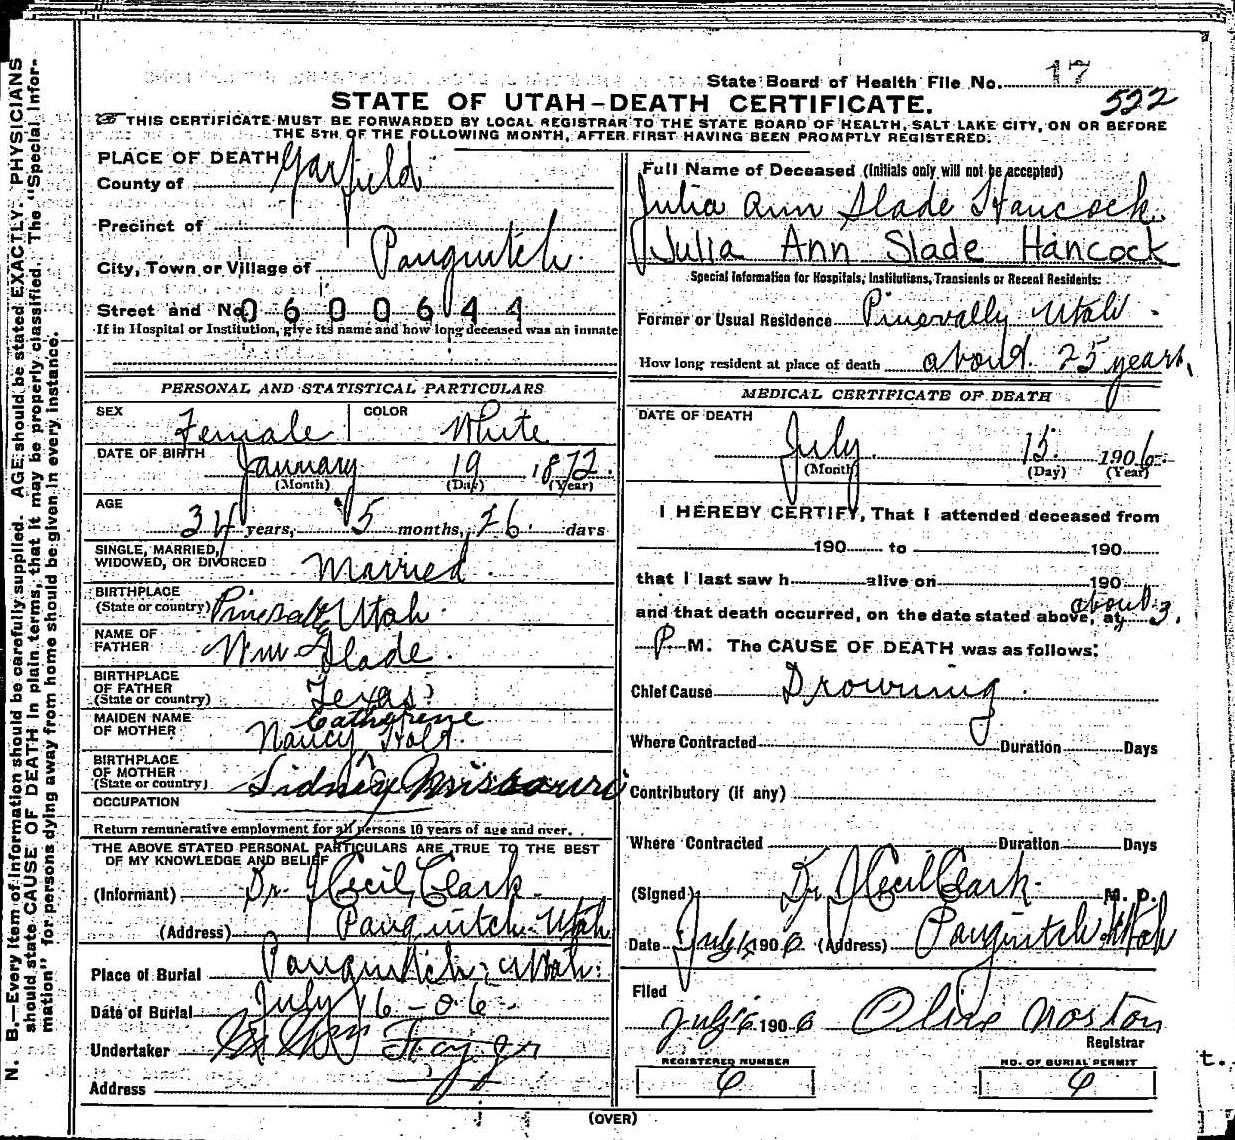 State Board of Health File No. 17
522
STATE OF UTAH–DEATH CERTIFICATE.
THIS CERTIFICATE MUST BE FORWARDED BY LOCAL REGISTRAR TO THE STATE BOARD OF HEALTH, SALT LAKE CITY, ON OR BEFORE
THE 5TH OF THE FOLLOWING MONTH, AFTER FIRST HAVING BEEN PROMPTLY REGISTERED.
PLACE OF DEATH
County of Garfield
Precinct of
City, Town or Village of Panguitch
Street and No. 0600644
If in Hospital or Institution, give its name and how long deceased was an inmate
Full Name of Deceased (Initials only will not be accepted)
Julia Ann Slade Hancock
Julia Ann Slade Hancock
Special Information for Hospitals, Institutions, Transients or Recent Residents:
Former or Usual Residence Pinevally Utah
How long resident at place of death about 25 years
PERSONAL AND STATISTICAL PARTICULARS
SEX Female COLOR White
DATE OF BIRTH January 19 1872
(Month) (Day) (Year)
AGE 34 years, 5 months, 26 days
SINGLE, MARRIED,
WIDOWED, OR DIVORCED Married
BIRTHPLACE
(State or country) Utah
NAME OF
FATHER Wm Slade
BIRTHPLACE
OF FATHER
(State or country) Texas
MAIDEN NAME
OF MOTHER Nancy Catherene Holt
BIRTHPLACE
OF MOTHER
(State or country) Sidney Missouri
OCCUPATION
Return remunerative employment for all persons 10 years of age and over.
THE ABOVE STATED PERSONAL PARTICULARS ARE TRUE TO THE BEST
OF MY KNOWLEDGE AND BELIEF
(Informant) Dr. J Cecil Clark
(Address) Panguitch Utah
Place of Burial Panguitch, Utah
Date of Burial July 16-06
Undertaker
Address
MEDICAL CERTIFICATE OF DEATH
DATE OF DEATH
July 15 1906
(Month) (Day) (Year)
I HEREBY CERTIFY, That I attended deceased from
190 to 190
that I last saw h alive on 190
and that death occurred, on the date stated above, at about 3.
P. M. The CAUSE OF DEATH was as follows:
Chief Cause Drowning
Where Contracted Duration Days
Contributory (if any)
Where Contracted Duration Days
(Signed) Dr J Cecil Clark M. D.
Date July 1906 (Address) Panguitch Utah
Filed
July 1906
Registrar
REGISTERED NUMBER
6
NO. OF BURIAL PERMIT
6
(OVER)
t.
N. B.—Every item of information should be carefully supplied. AGE should be stated EXACTLY. PHYSICIANS
should state CAUSE OF DEATH in plain terms, that it may be properly classified. The "Special Infor-
mation" for persons dying away from home should be given in every instance.